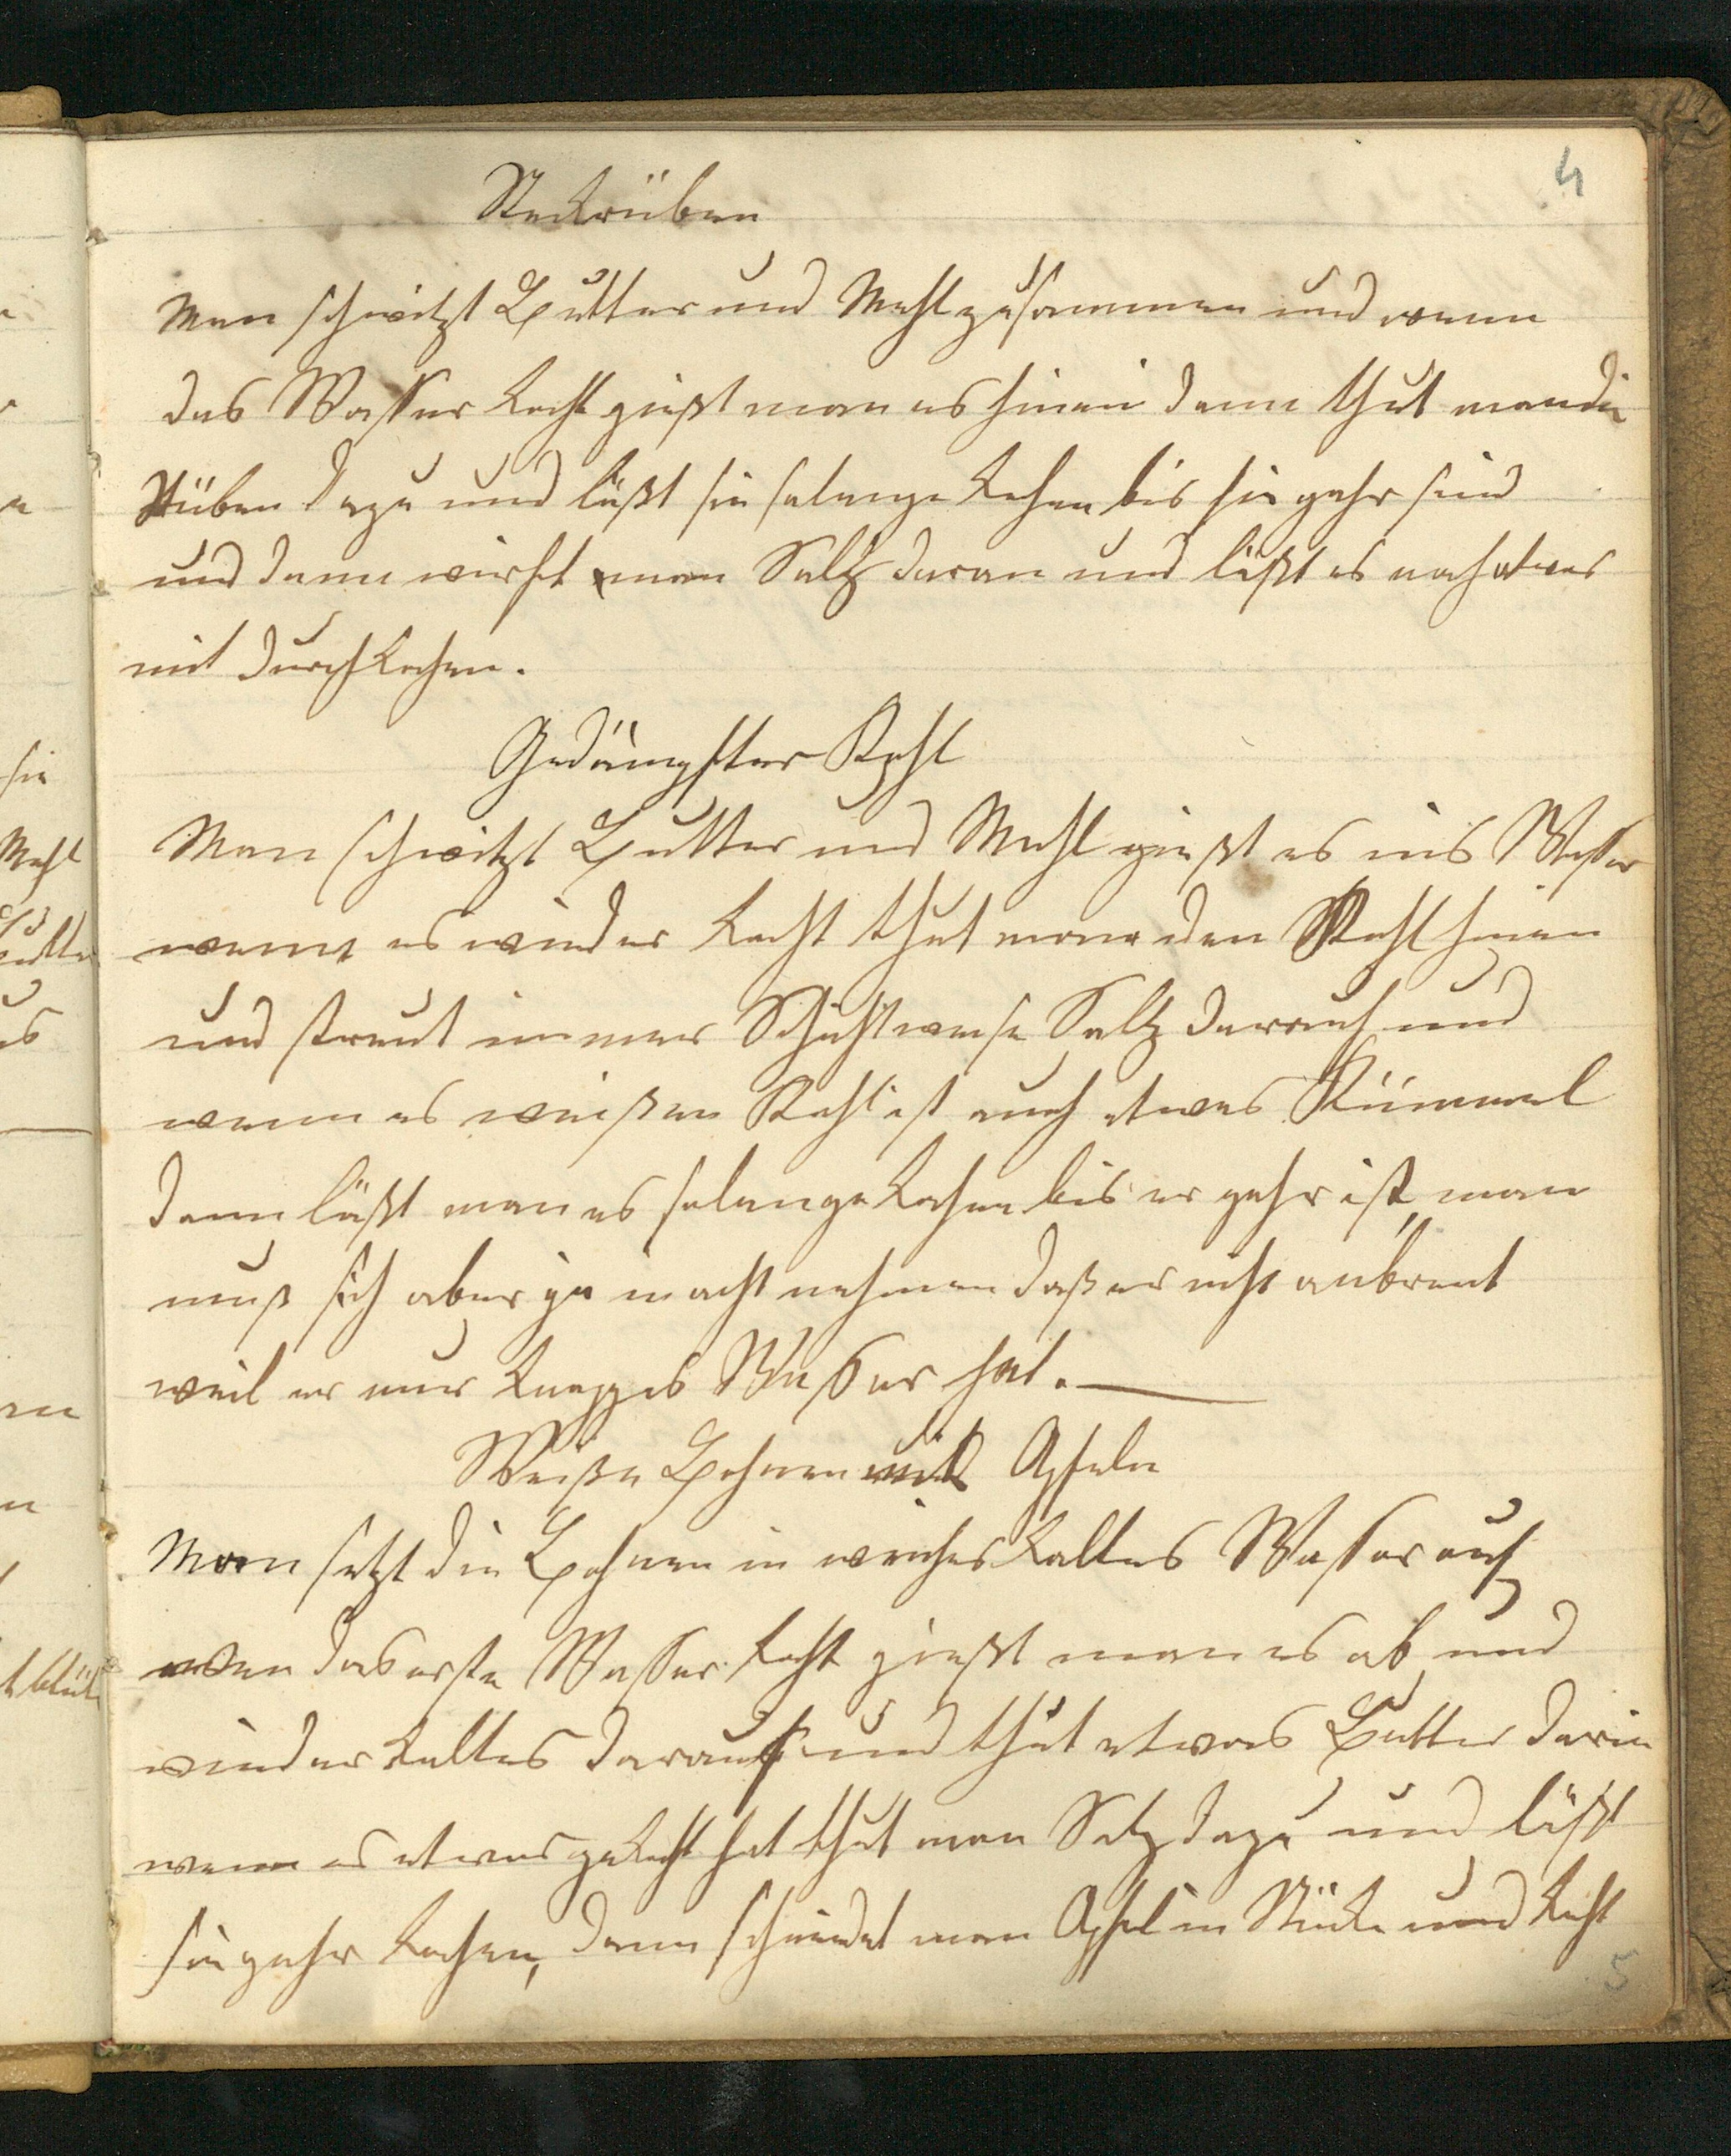 4
Steckrüben
Man schwitzt Butter und Mehl zusammen und wenn
das Wasser kocht gießt man es hinein dann thut man die
Rüben dazu und läßt sie solange kochen bis sie gahr sind
und dann wirft man Salz daran und läßt es noch etwas
mit durchkochen.
Gedämpfter Kohl
Man schwitzt Butter und Mehl gießt es ins Wasser
wenn es wieder kocht thut man den Kohl hinein
und streut immer Schichtweise Salz darauf und
wenn es weißer Kohl ist auch etwas Kümmel
dann läßt man es solange kochen bis er gahr ist, man
muß sich aber ja in acht nehmen daß er nicht anbrent
weil er nur knappes Wasser hat.
Weiße Bohnen mit Apfeln
Man setzt die Bohnen in weiches kaltes Wasser auf
wen das erste Wasser kocht gießt man es ab und
wieder kaltes darauf und thut etwas Butter darin
wenn es etwas gekocht hat thut man Salz dazu und läßt
sie gahr kochen, dann schneidet man Apfel in Stücke und kocht
5
sie
Mehl